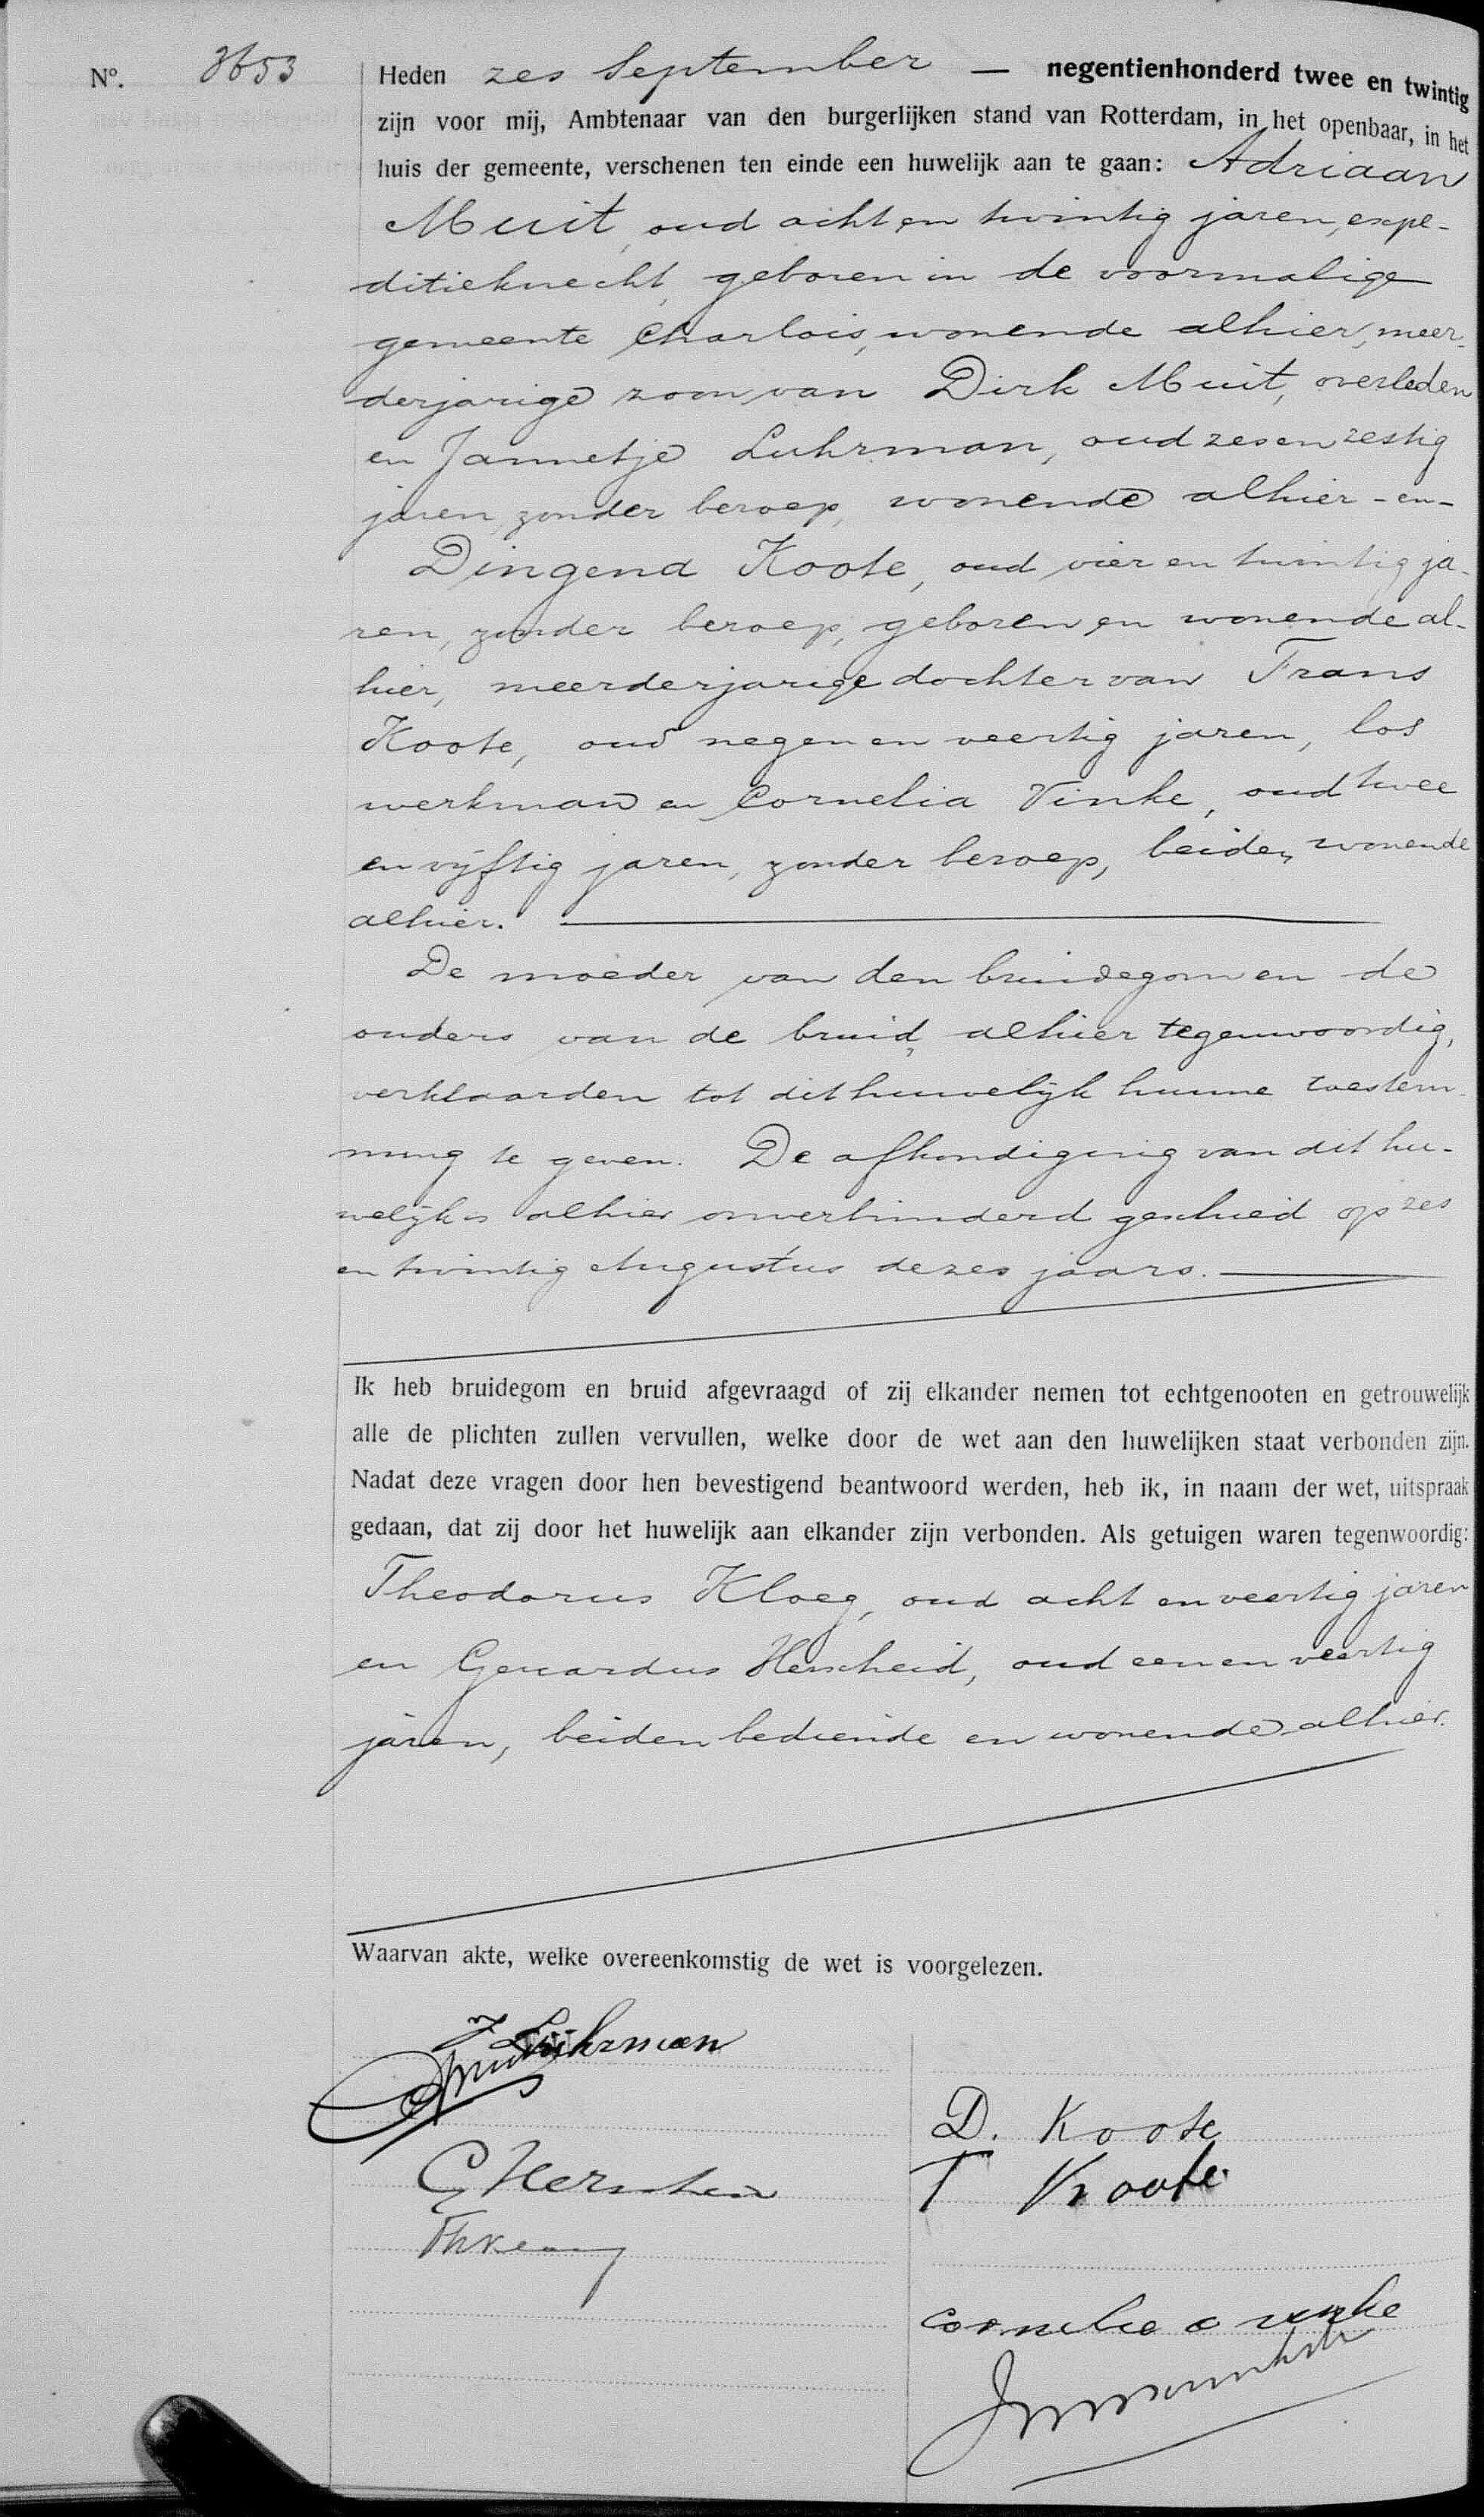 Nº. 3653
Heden zes September — negentienhonderd twee en twintig
zijn voor mij, Ambtenaar van den burgerlijken stand van Rotterdam, in het openbaar, in het
huis der gemeente, verschenen ten einde een huwelijk aan te gaan: Adriaan
Muit, oud acht en twintig jaren, expe-
ditieknecht, geboren in de voormalige
gemeente Charlois, wonende alhier, meer-
derjarige zoon van Dirk Muit, overleden
en Jannetje Luhrman, oud zes en zestig
jaren, zonder beroep, wonende alhier -en-
Dingena Koote, oud vier en twintig ja-
ren, zonder beroep, geboren en wonende al-
hier, meerderjarige dochter van Frans
Koote, oud negen en veertig jaren, los
werkman en Cornelia Vinke, oud twee
en vijftig jaren, zonder beroep, beiden wonende
alhier.
De moeder van den bruidegom en de
ouders van de bruid, alhier tegenwoordig,
verklaarden tot dit huwelijk hunne toestem-
ming te geven. De afkondiging van dit hu-
welijk is alhier onverhinderd geschied op zes
en twintig Augustus dezes jaars.
Ik heb bruidegom en bruid afgevraagd of zij elkander nemen tot echtgenooten en getrouwelijk
alle de plichten zullen vervullen, welke door de wet aan den huwelijken staat verbonden zijn.
Nadat deze vragen door hen bevestigend beantwoord werden, heb ik, in naam der wet, uitspraak
gedaan, dat zij door het huwelijk aan elkander zijn verbonden. Als getuigen waren tegenwoordig:
Theodorus Kloeg, oud acht en veertig jaren
en Gerardus Herscheid, oud een en veertig
jaren, beiden bediende en wonende alhier.
Waarvan akte, welke overeenkomstig de wet is voorgelezen.
J Lührman
AMuit
D. Koote
G Herscheid
F Koote
Cornelia Vinke